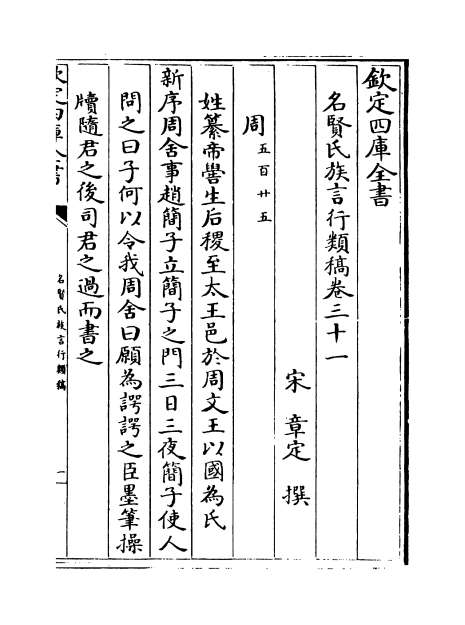 欽定四庫全書
名賢氏族言行類稿卷三十一
宋 章定 撰
周 五百廿五
姓纂帝嚳生后稷至太王邑於周文王以國為氏
新序周舍事趙簡子立簡子之門三日三夜簡子使人
問之曰子何以令我周舍曰願為諤諤之臣墨筆操
牘隨君之後司君之過而書之
欽定四庫全書
名賢氏族言行類稿
一